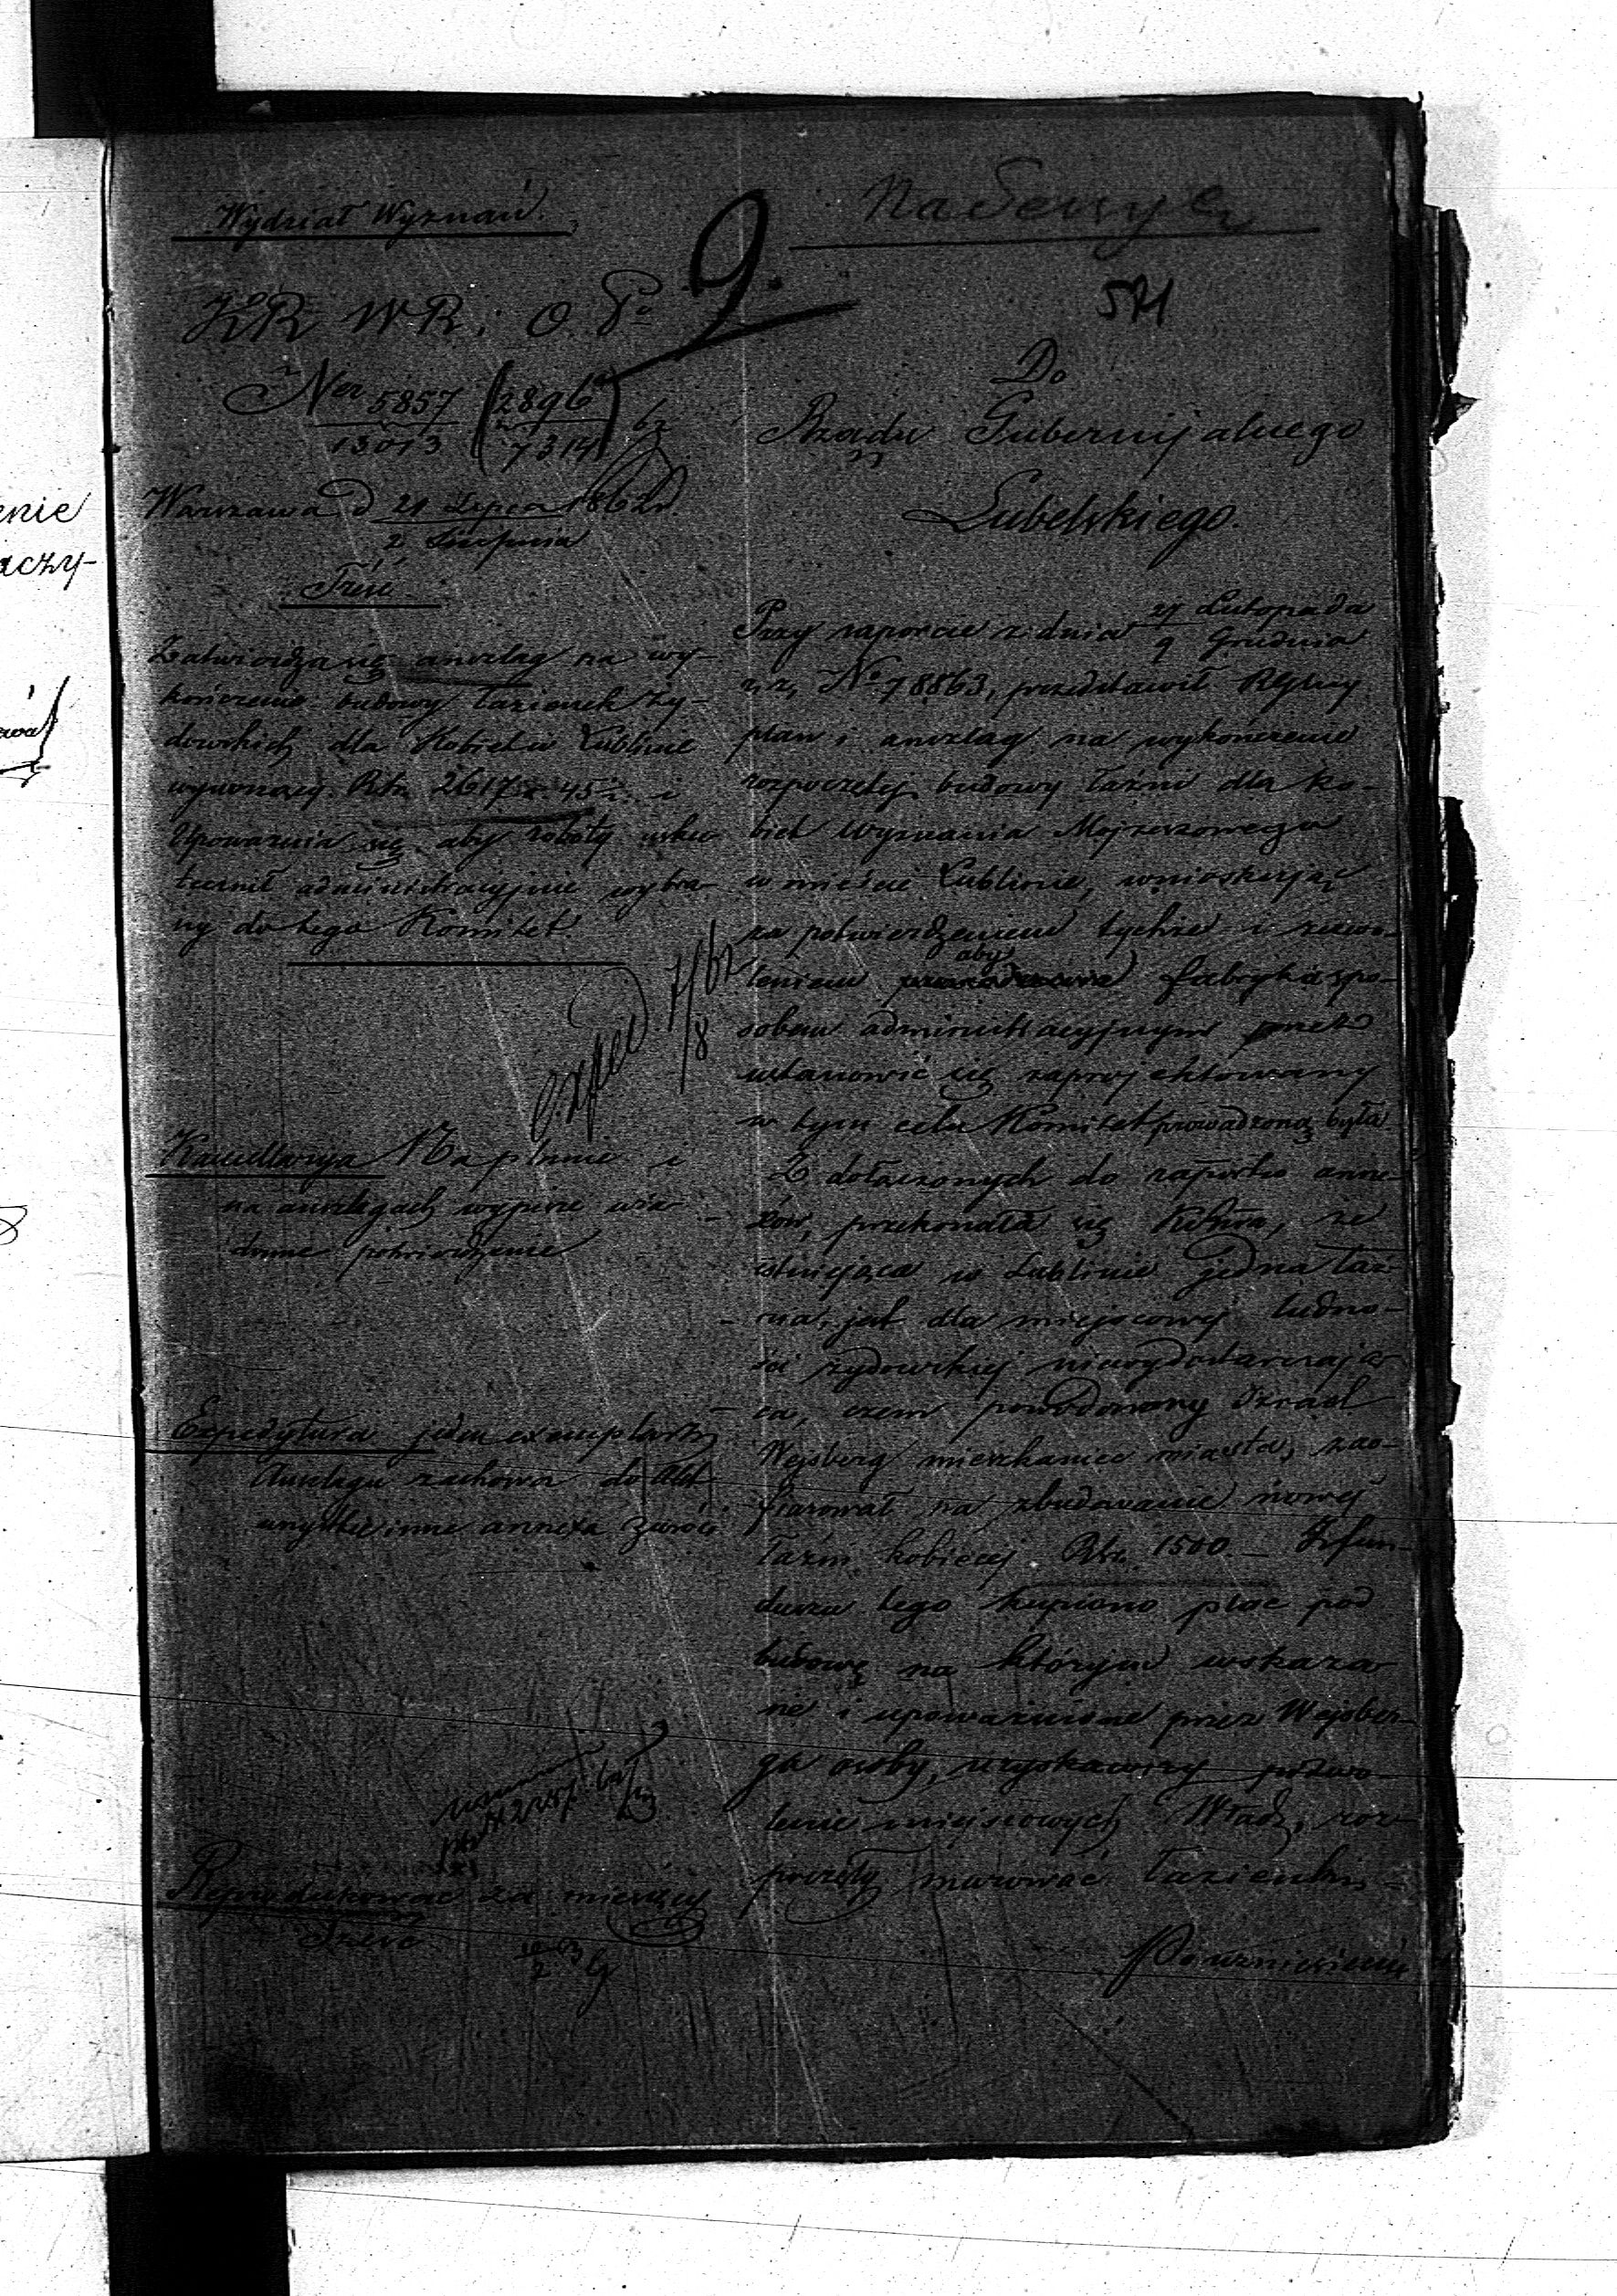 Wydział Wyznań.
Na Sessyę
9.
571
K R W R i O P
Ner 5857 (2896)
13013 (7314) 62
Warszawa d 21 Lipca 1862 r.
2 Sierpnia
Treść
Zatwierdza się anszlag na wy-
kończenie budowy łazienek ży-
dowskich dla Kobiet w Lublinie
wynoszący Rsr. 2617 k 45½ i
Upoważnia się aby roboty usku-
tecznił administracyjnie wybra-
ny do tego Komitet
exped 7/8 62
Kancellarya Na planie i
na anszlagach wypisze wia-
dome potwierdzenie
Expedytura jeden exemplarz
Anszlagu zachowa do Akt
wszystkie inne annexa zwróci
Reprodukować za miesięcy
Sześć
Do
Rządu Gubernijalnego
Lubelskiego.
Przy raporcie z dnia 27 Listopada
9 Grudnia
r. z. No 78863, przedstawił RGbny
plan i anszlag na wykończenie
rozpoczętej budowy łaźni dla ko-
biet wyznania Mojżeszowego
w mieście Lublinie, wnioskując
za potwierdzeniem tychże i zezwo-
leniem aby fabryka spo-
sobem administracyjnym przez
ustanowić się zaprojektowany
w tym celu Komitet prowadzoną była.
Z dołączonych do raportu anne-
xów, przekonała się KRząd, że
istniejąca w Lublinie jedna łaź-
nia, jest dla miejscowej ludno-
ści żydowskiej niewydostarczają-
ca, czem powodowany Izrael
Wejsberg mieszkaniec miasta, zao-
fiarował na zbudowanie nowej
łaźni kobiecej Rsr. 1500 — Z fun-
duszu tego kupiono plac pod
budowę na którym wskaza-
ne i upoważnione przez Wejsber-
ga osoby, uzyskawszy pozwo-
lenie miejscowych Władz, roz-
poczęły murować łazienki. —
Po wzniesieniu
enie
aczy-